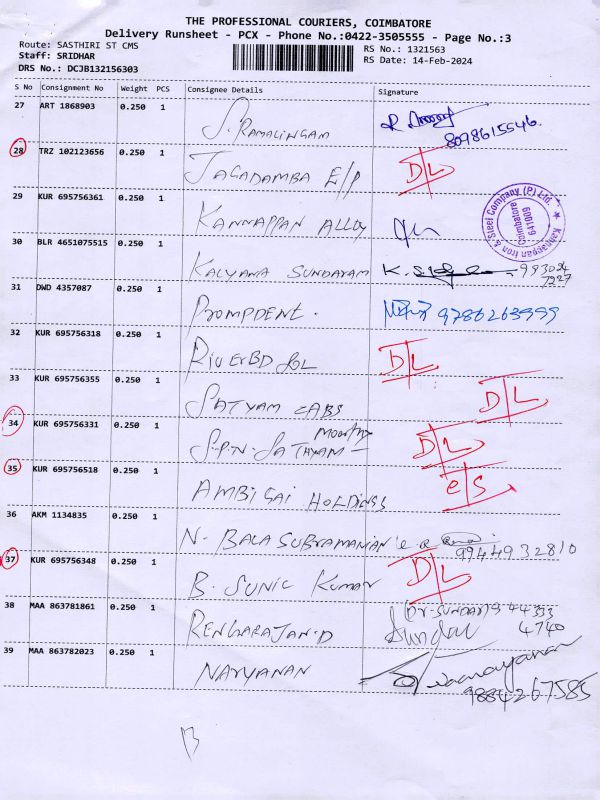 THE PROFESSIONAL COURIERS, COIMBATORE
Delivery Runsheet - PCX - Phone No.:0422-3505555 - Page No.:3
Route: SASTHIRI ST CMS RS No.: 1321563
Staff: SRIDHAR RS Date: 14-Feb-2024
DRS No.: DCJB132156303
S No Consignment No Weight PCS Consignee Details Signature
27 ART 1868903 0.250 1 S. RAMALINGAM 8098615546.
28 TRZ 102123656 0.250 1 JAGADAMBA E/P D/L
29 KUR 695756361 0.250 1 KANNAPPAN ALLOY
Kannappan Iron & Steel Company (P) Ltd. Coimbatore 641009
30 BLR 4651075515 0.250 1 KALYANA SUNDARAM K.
31 DWD 4357087 0.250 1 PROMPDENT. 9786263999
32 KUR 695756318 0.250 1 D/L
33 KUR 695756355 0.250 1 SATYAM LABS D/L
34 KUR 695756331 0.250 1 S.P.N. SATHYAM MOORTHY D/L
35 KUR 695756518 0.250 1 AMBIGAI HOLDINGS e/s
36 AKM 1134835 0.250 1 N. BALASUBRAMANIAN 9944932810
37 KUR 695756348 0.250 1 B. SUNIL KUMAR D/L
38 MAA 863781861 0.250 1 RENGARAJAN.D (Dr. SUNDAR) 944333
Sundar 4740
39 MAA 863782023 0.250 1 NARYANAN
9884267585
13